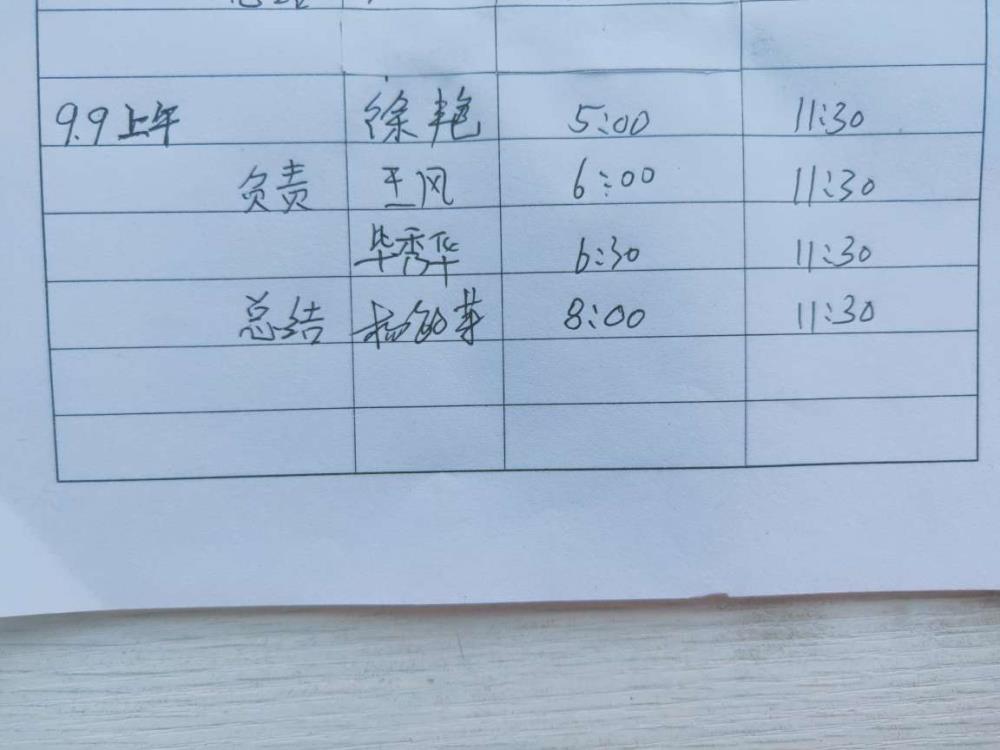 9.9上午 徐艳 5:00 11:30
负责 王风 6:00 11:30
毕秀华 6:30 11:30
总结 8:00 11:30